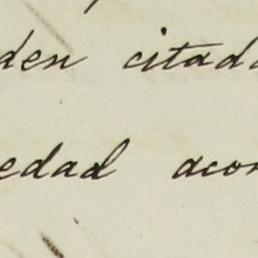 den citad
edad acor